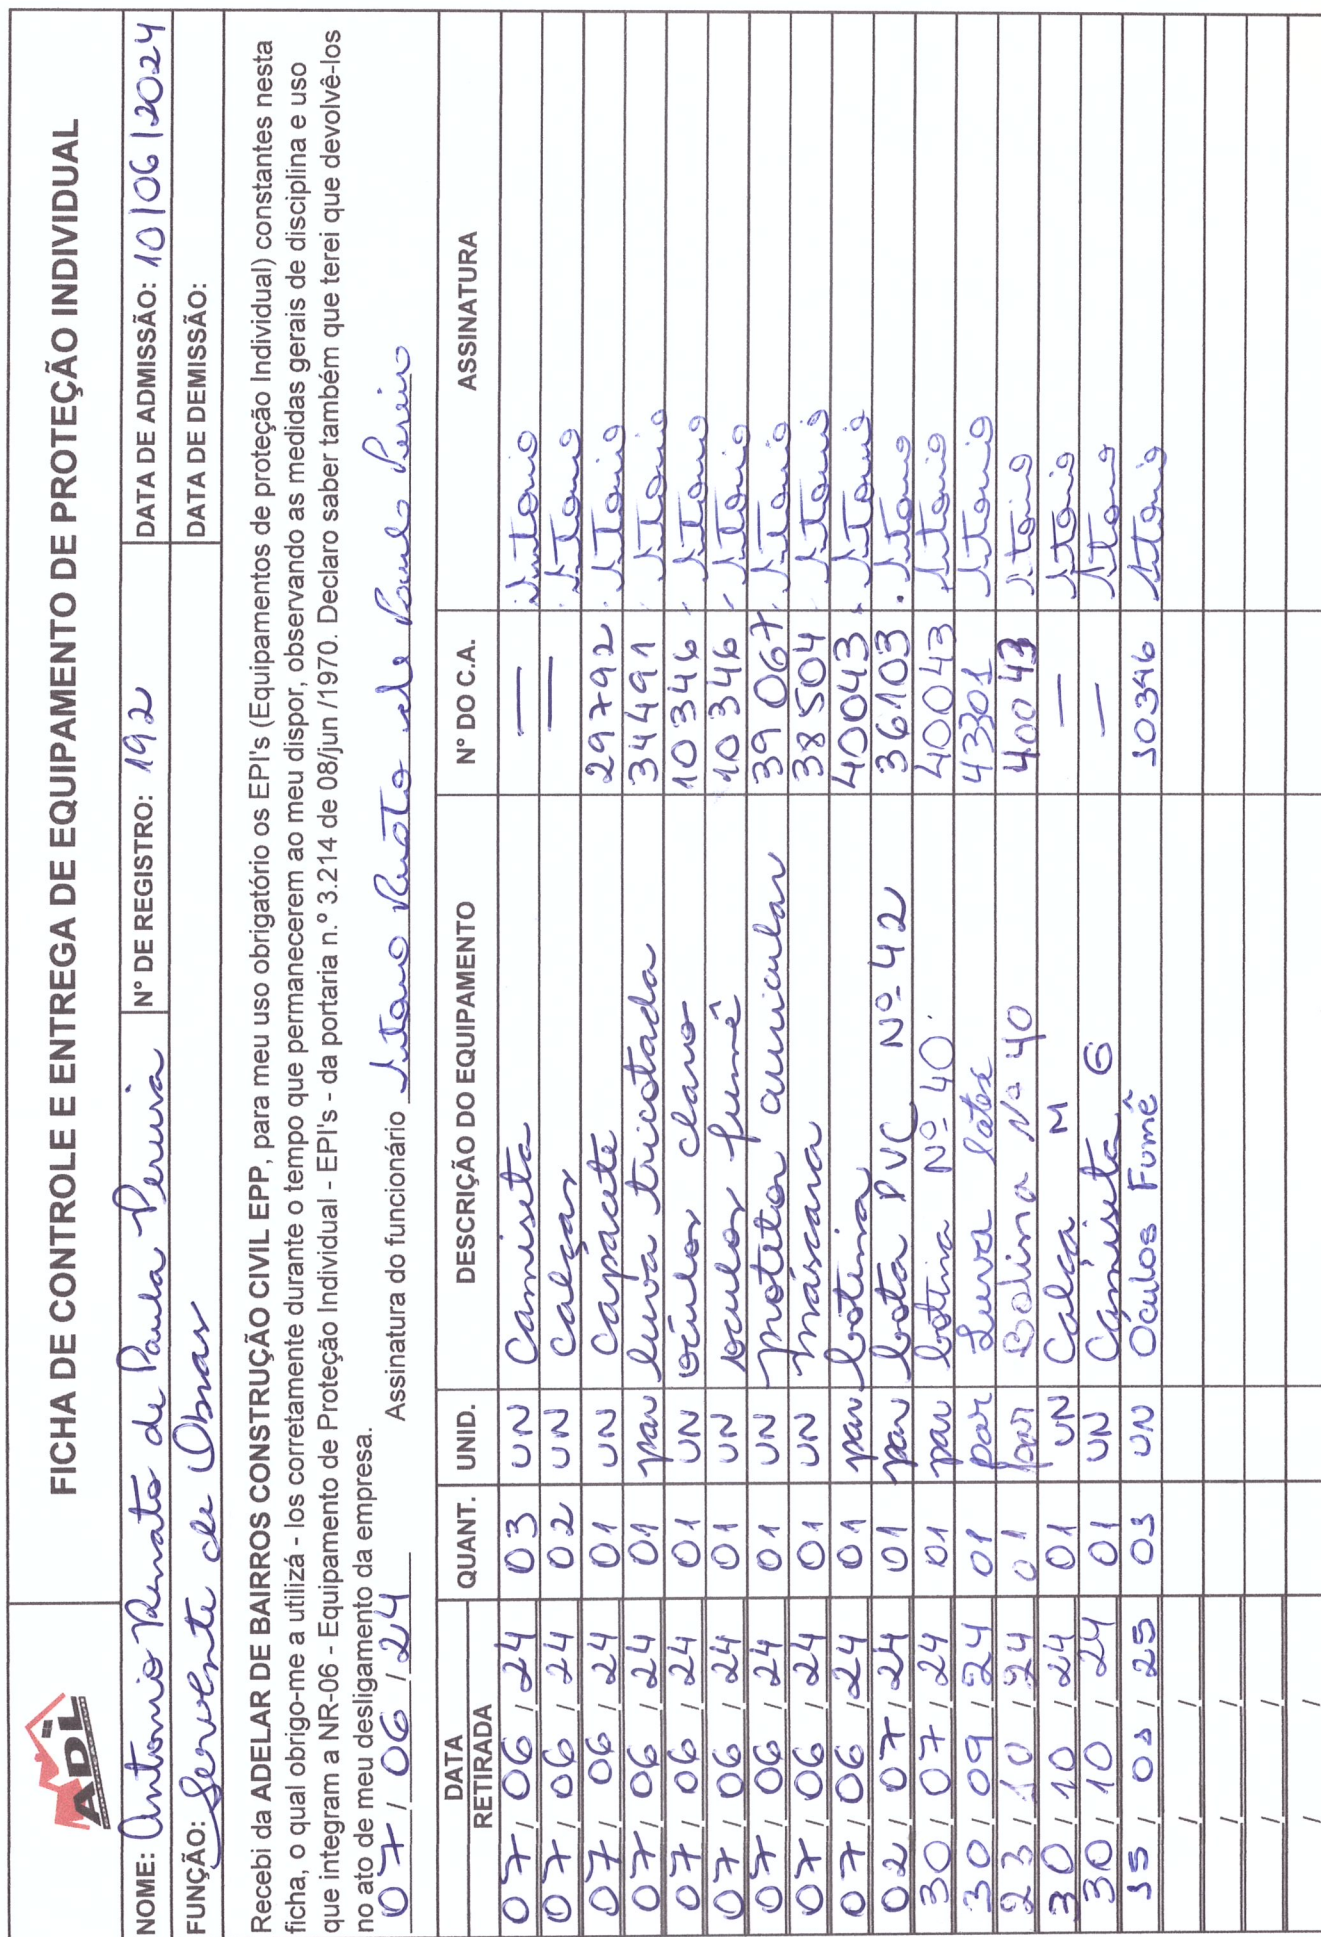 ADL
FICHA DE CONTROLE E ENTREGA DE EQUIPAMENTO DE PROTEÇÃO INDIVIDUAL
NOME: Antonio Renato de Paula Pereira N° DE REGISTRO: 192 DATA DE ADMISSÃO: 10/06/2024
FUNÇÃO: Servente de Obras DATA DE DEMISSÃO:
Recebi da ADELAR DE BAIRROS CONSTRUÇÃO CIVIL EPP, para meu uso obrigatório os EPI's (Equipamentos de proteção Individual) constantes nesta
ficha, o qual obrigo-me a utilizá - los corretamente durante o tempo que permanecerem ao meu dispor, observando as medidas gerais de disciplina e uso
que integram a NR-06 - Equipamento de Proteção Individual - EPI's - da portaria n.º 3.214 de 08/jun /1970. Declaro saber também que terei que devolvê-los
no ato de meu desligamento da empresa.
07/06/24 Assinatura do funcionário Antonio Renato de Paula Pereira
DATA RETIRADA QUANT. UNID. DESCRIÇÃO DO EQUIPAMENTO N° DO C.A. ASSINATURA
07/06/24 03 UN Camiseta — Antonio
07/06/24 02 UN calças — Antonio
07/06/24 01 UN capacete 29792 Antonio
07/06/24 01 par luva tricotada 34491 Antonio
07/06/24 01 UN óculos claro 10346 Antonio
07/06/24 01 UN oculos fumê 10346 Antonio
07/06/24 01 UN protetor auricular 39067 Antonio
07/06/24 01 UN máscara 38504 Antonio
07/06/24 01 par botina 40043 Antonio
02/07/24 01 par bota PVC Nº 42 36103 Antonio
30/07/24 01 par botina Nº 40 40043 Antonio
30/09/24 01 par Luva latex 43301 Antonio
23/10/24 01 par Botina Nº 40 40043 Antonio
30/10/24 01 UN Calça M — Antonio
30/10/24 01 UN Camiseta G — Antonio
15/01/25 01 UN Óculos Fumê 10346 Antonio